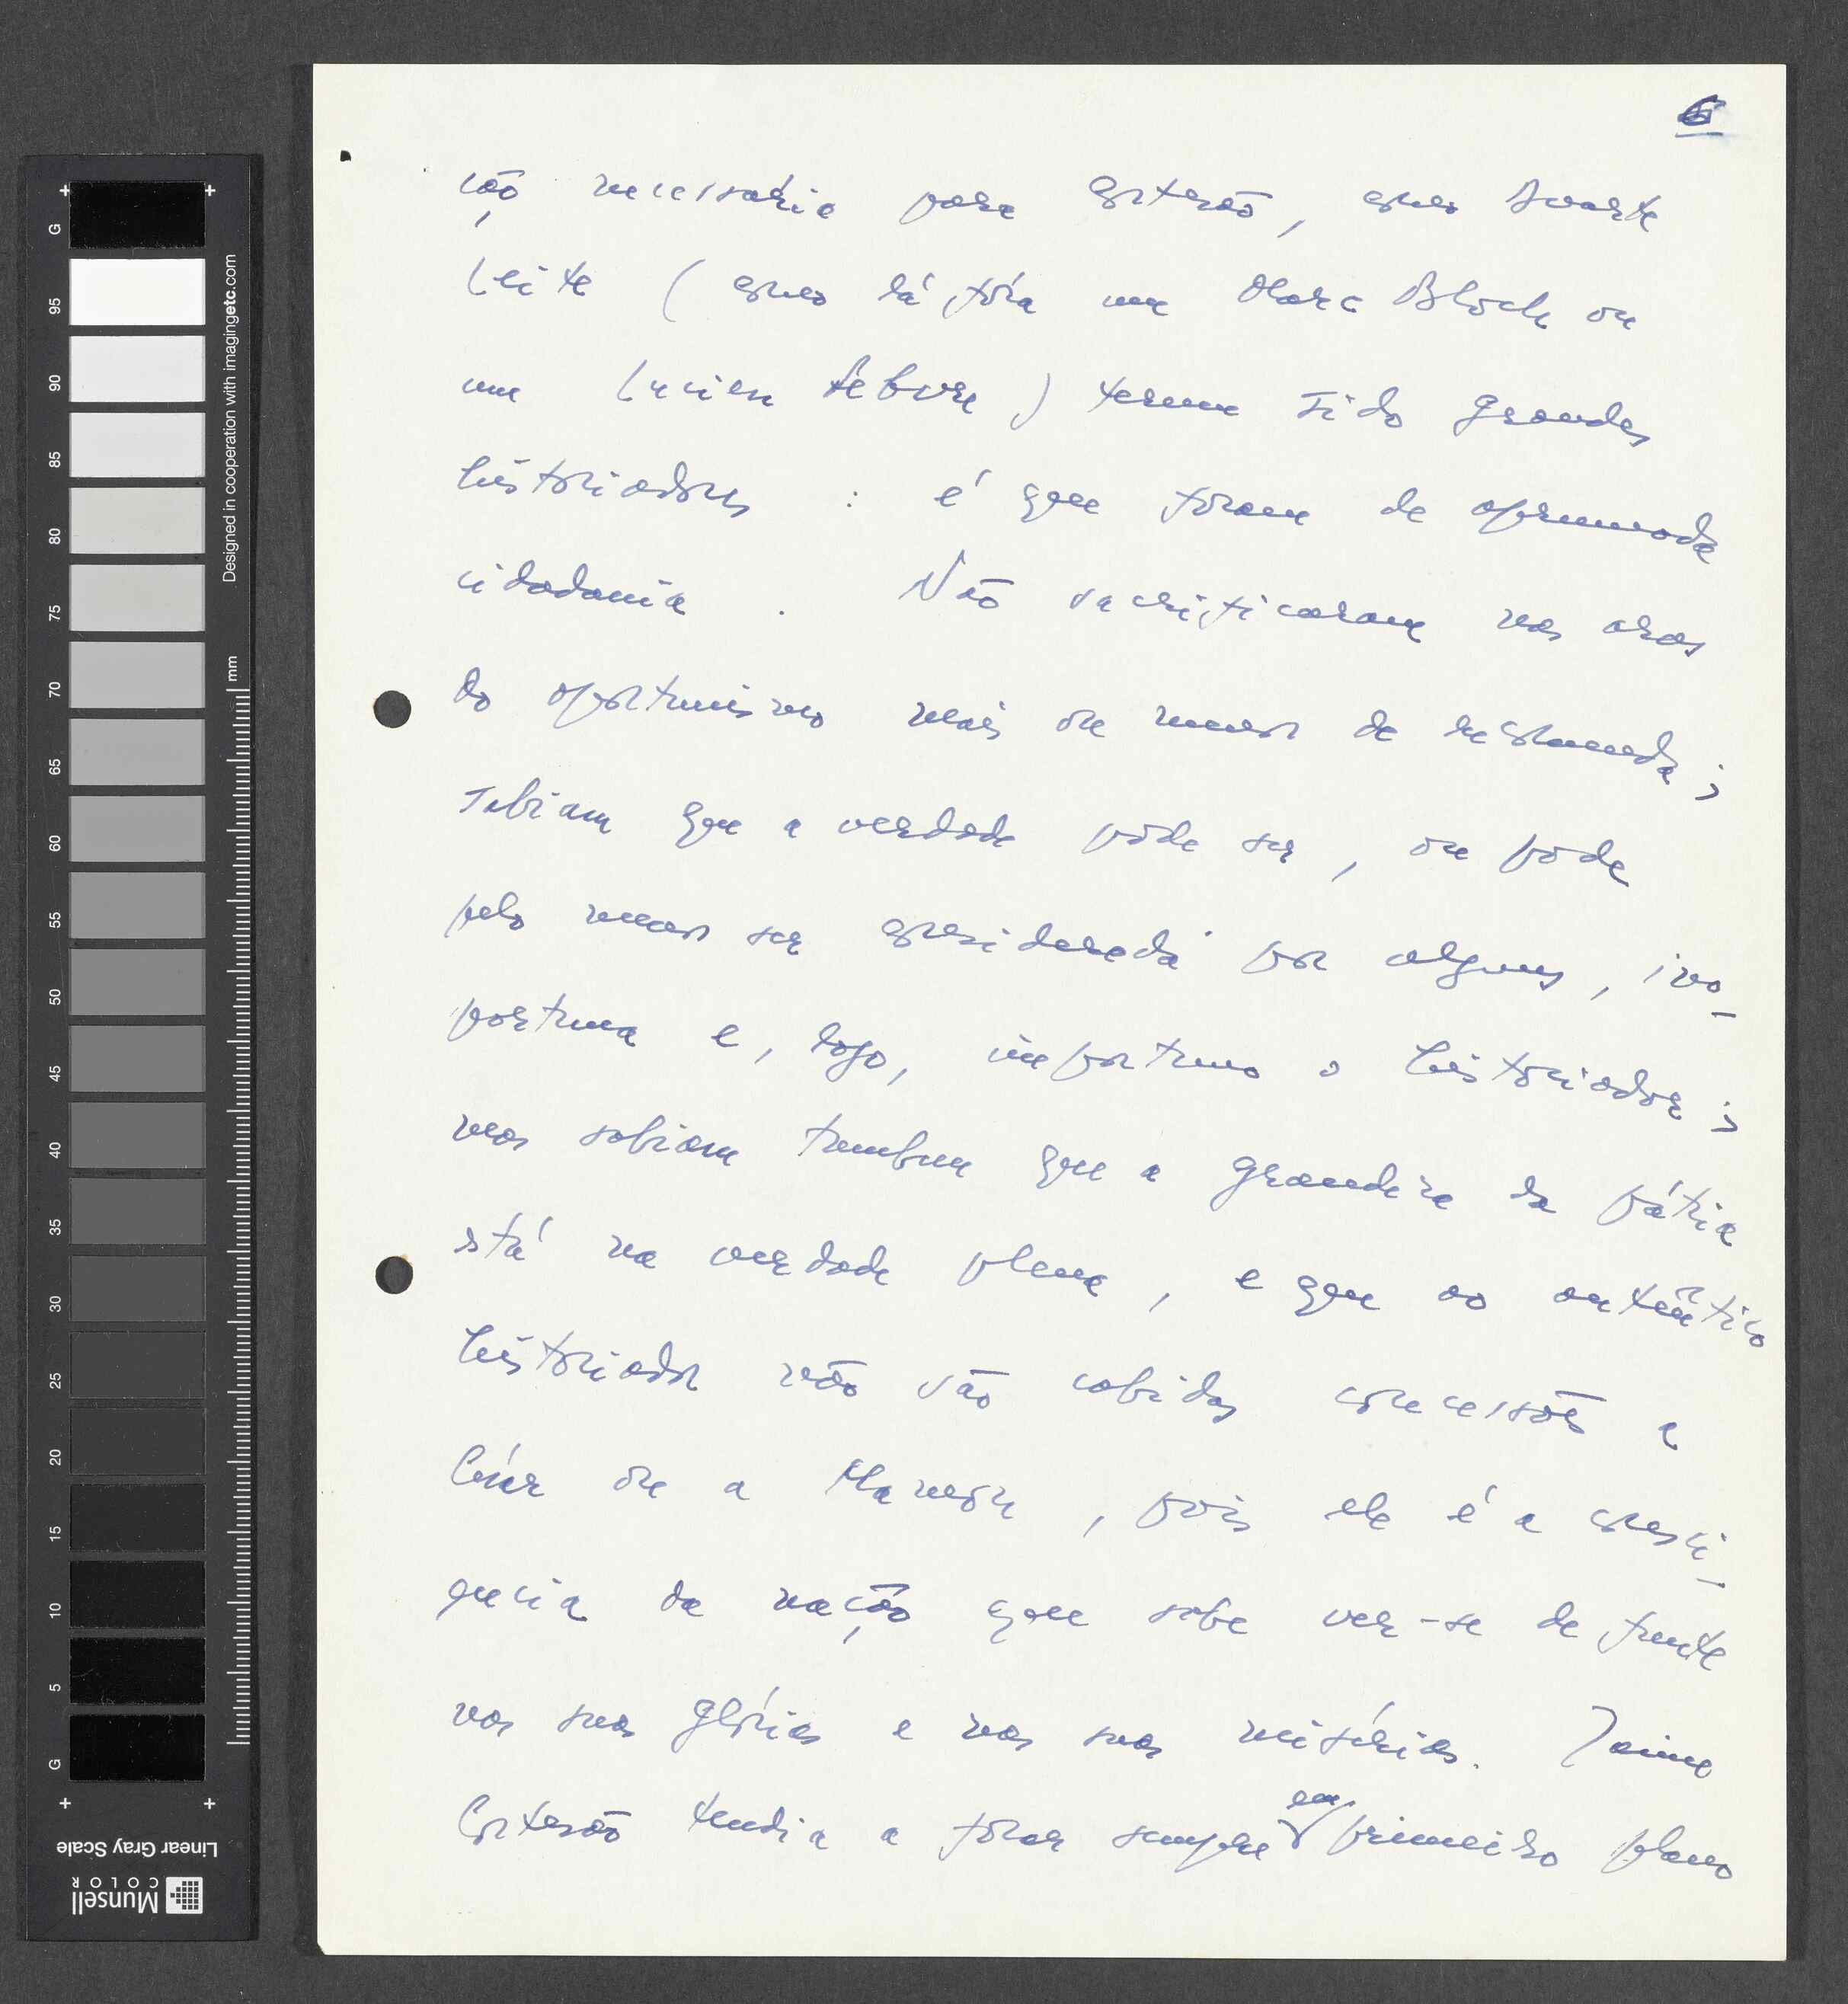 6
ção necessária para Cortesão, como Duarte
Leite (como lá fóra um Marc Bloch ou
um Lucien Febvre) terem sido grandes
historiadores : é que foram de aprumada
cidadania . Não sacrificaram nas aras
do oportunismo mais ou menos de
sabiam que a verdade póde ser, ou pode
pelo menos ser considerada por alguns, ino-
portuna e, logo, importuno o historiador ;
mas sabiam tambem que a grandeza da pátria
stá na verdade plena, e que ao autêntico
historiador não são cabidas concessões a
César ou a Mamon, pois ele é a consci-
encia da nação que sabe ver-se de frente
nas suas glórias e nas suas misérias. Jaime
Cortesão tendia a focar sempre em primeiro plano
G
95
90
85
80
75
70
65
60
55
50
45
40
35
30
25
20
15
10
5
G
mm
Designed in cooperation with imagingetc.com
Linear Gray Scale
Munsell
COLOR